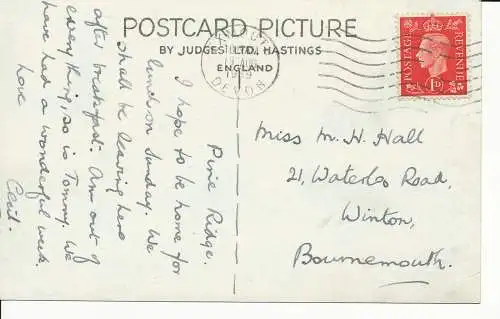 POSTCARD PICTURE
BY JUDGES LTD, HASTINGS
ENGLAND
DEVON
1939
POSTAGE
REVENUE
1D
Pine Ridge.
I hope to be home for
lunch on Sunday. We
shall be leaving here
after breakfast. Am out of
everything, so is Tommy. We
have had a wonderful week.
Love
Cecil.
Miss M. H. Hall
21, Waterloo Road,
Winton,
Bournemouth.